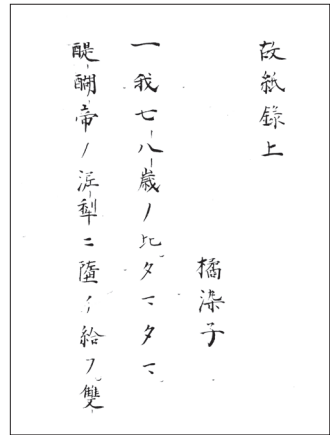 故紙録上
橘染子
一我七八歳ノ比タマタマ
醍醐帝ノ泥犁ニ墮チ給フ雙